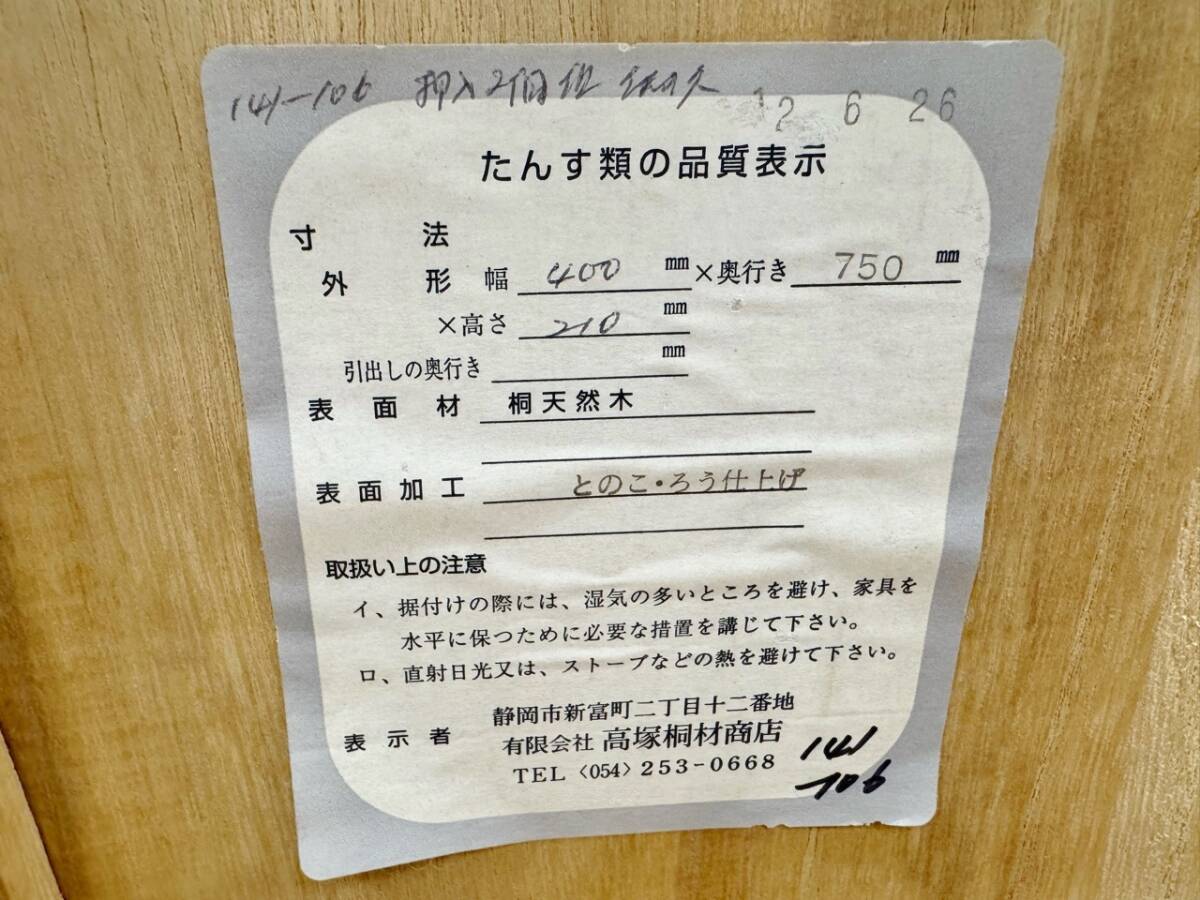 141-106 押入2個組
12 6 26
たんす類の品質表示
寸法
外形 幅 400 mm ×奥行き 750 mm
×高さ 210 mm
引出しの奥行き mm
表面材 桐天然木
表面加工 とのこ・ろう仕上げ
取扱い上の注意
イ、据付けの際には、湿気の多いところを避け、家具を
水平に保つために必要な措置を講じて下さい。
ロ、直射日光又は、ストーブなどの熱を避けて下さい。
静岡市新富町二丁目十二番地
表示者 有限会社 高塚桐材商店
TEL〈054〉253-0668
141
106